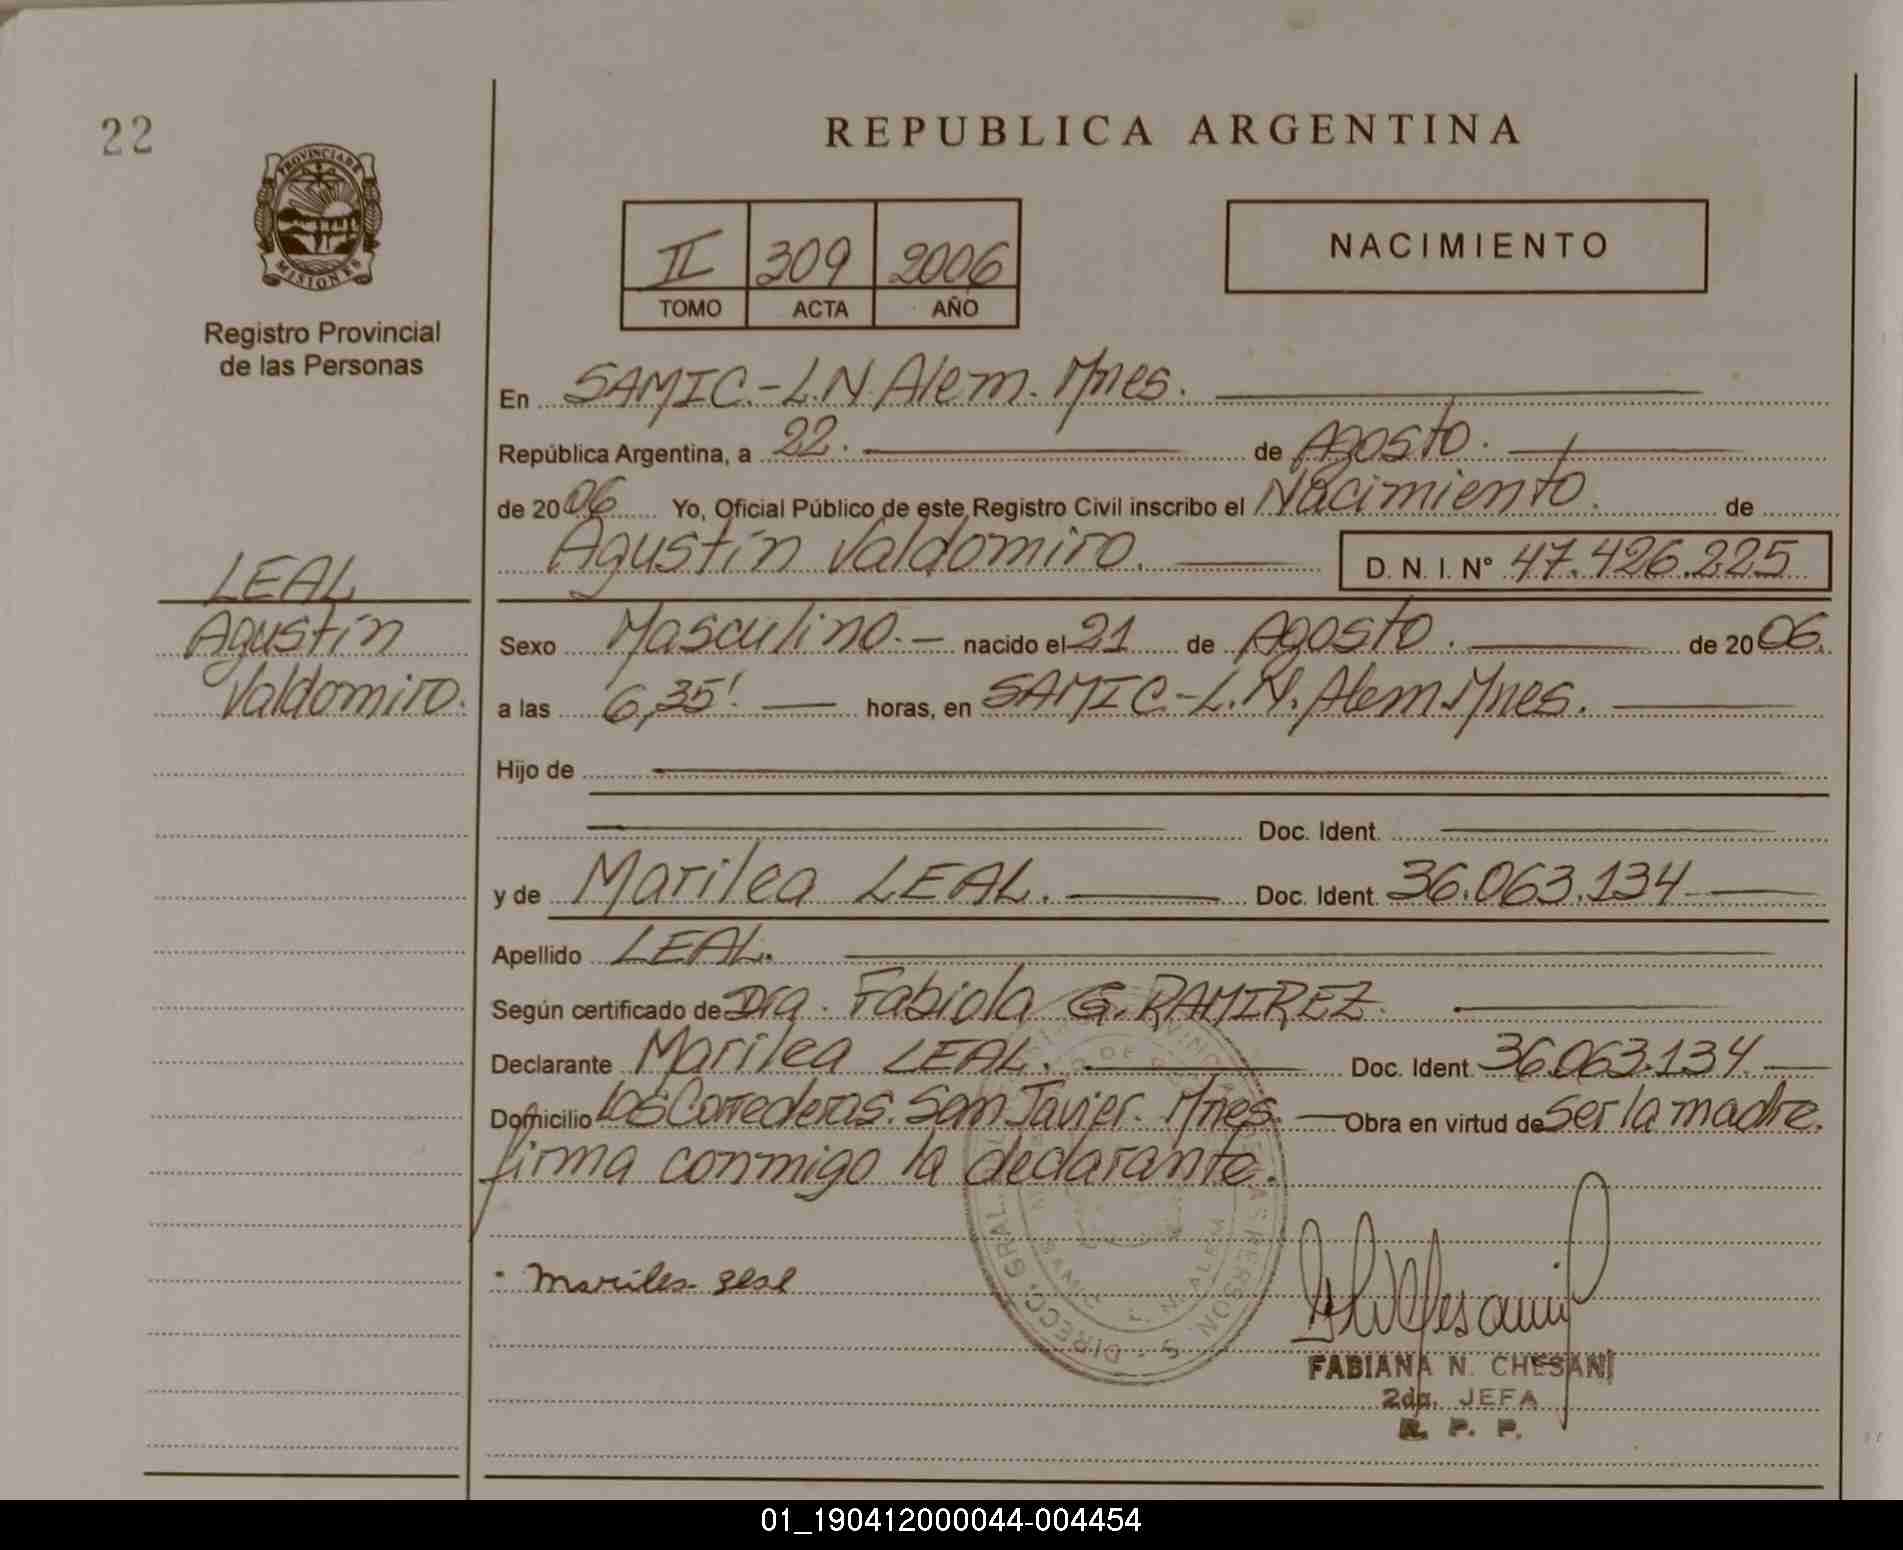 22
REPUBLICA ARGENTINA
PROVINCIA DE
MISIONES
Registro Provincial
de las Personas
II 309 2006
TOMO ACTA AÑO
NACIMIENTO
En SAMIC.-L.N.Alem. Mnes.
República Argentina, a 22. de Agosto.
de 2006 Yo, Oficial Público de este Registro Civil inscribo el Nacimiento. de
Agustín Valdomiro. D. N. I. N° 47.426.225
LEAL
Agustín
Valdomiro.
Sexo Masculino.- nacido el 21 de Agosto. de 2006.
a las 6,35' horas, en SAMIC.-L.N. Alem.Mnes.
Hijo de
Doc. Ident.
y de Marilea LEAL. Doc. Ident. 36.063.134
Apellido LEAL.
Según certificado de Dra. Fabiola G. RAMIREZ.
Declarante Marilea LEAL. Doc. Ident. 36.063.134.
Domicilio Los Correderas. San Javier. Mnes. Obra en virtud de Ser la madre.
firma conmigo la declarante.
FABIANA N. CHESANI
2da. JEFA
R. P. P.
01_190412000044-004454